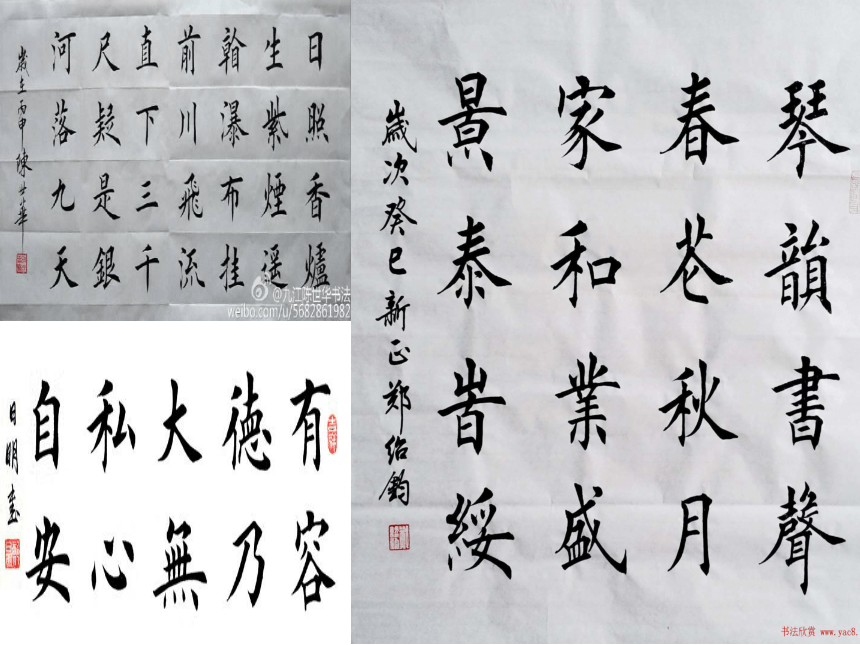 日照香爐
生紫煙遥
看瀑布挂
前川飛流
直下三千
尺疑是銀
河落九天
歲在丙申陳世華
@九江陈世华书法
weibo.com/u/5682861982
琴韻書聲
春芲秋月
家和業盛
景泰旹綏
歲次癸巳新正郑绍鈞
书法欣赏 www.yac8.
有容
德乃
大無
私心
自安
日明書